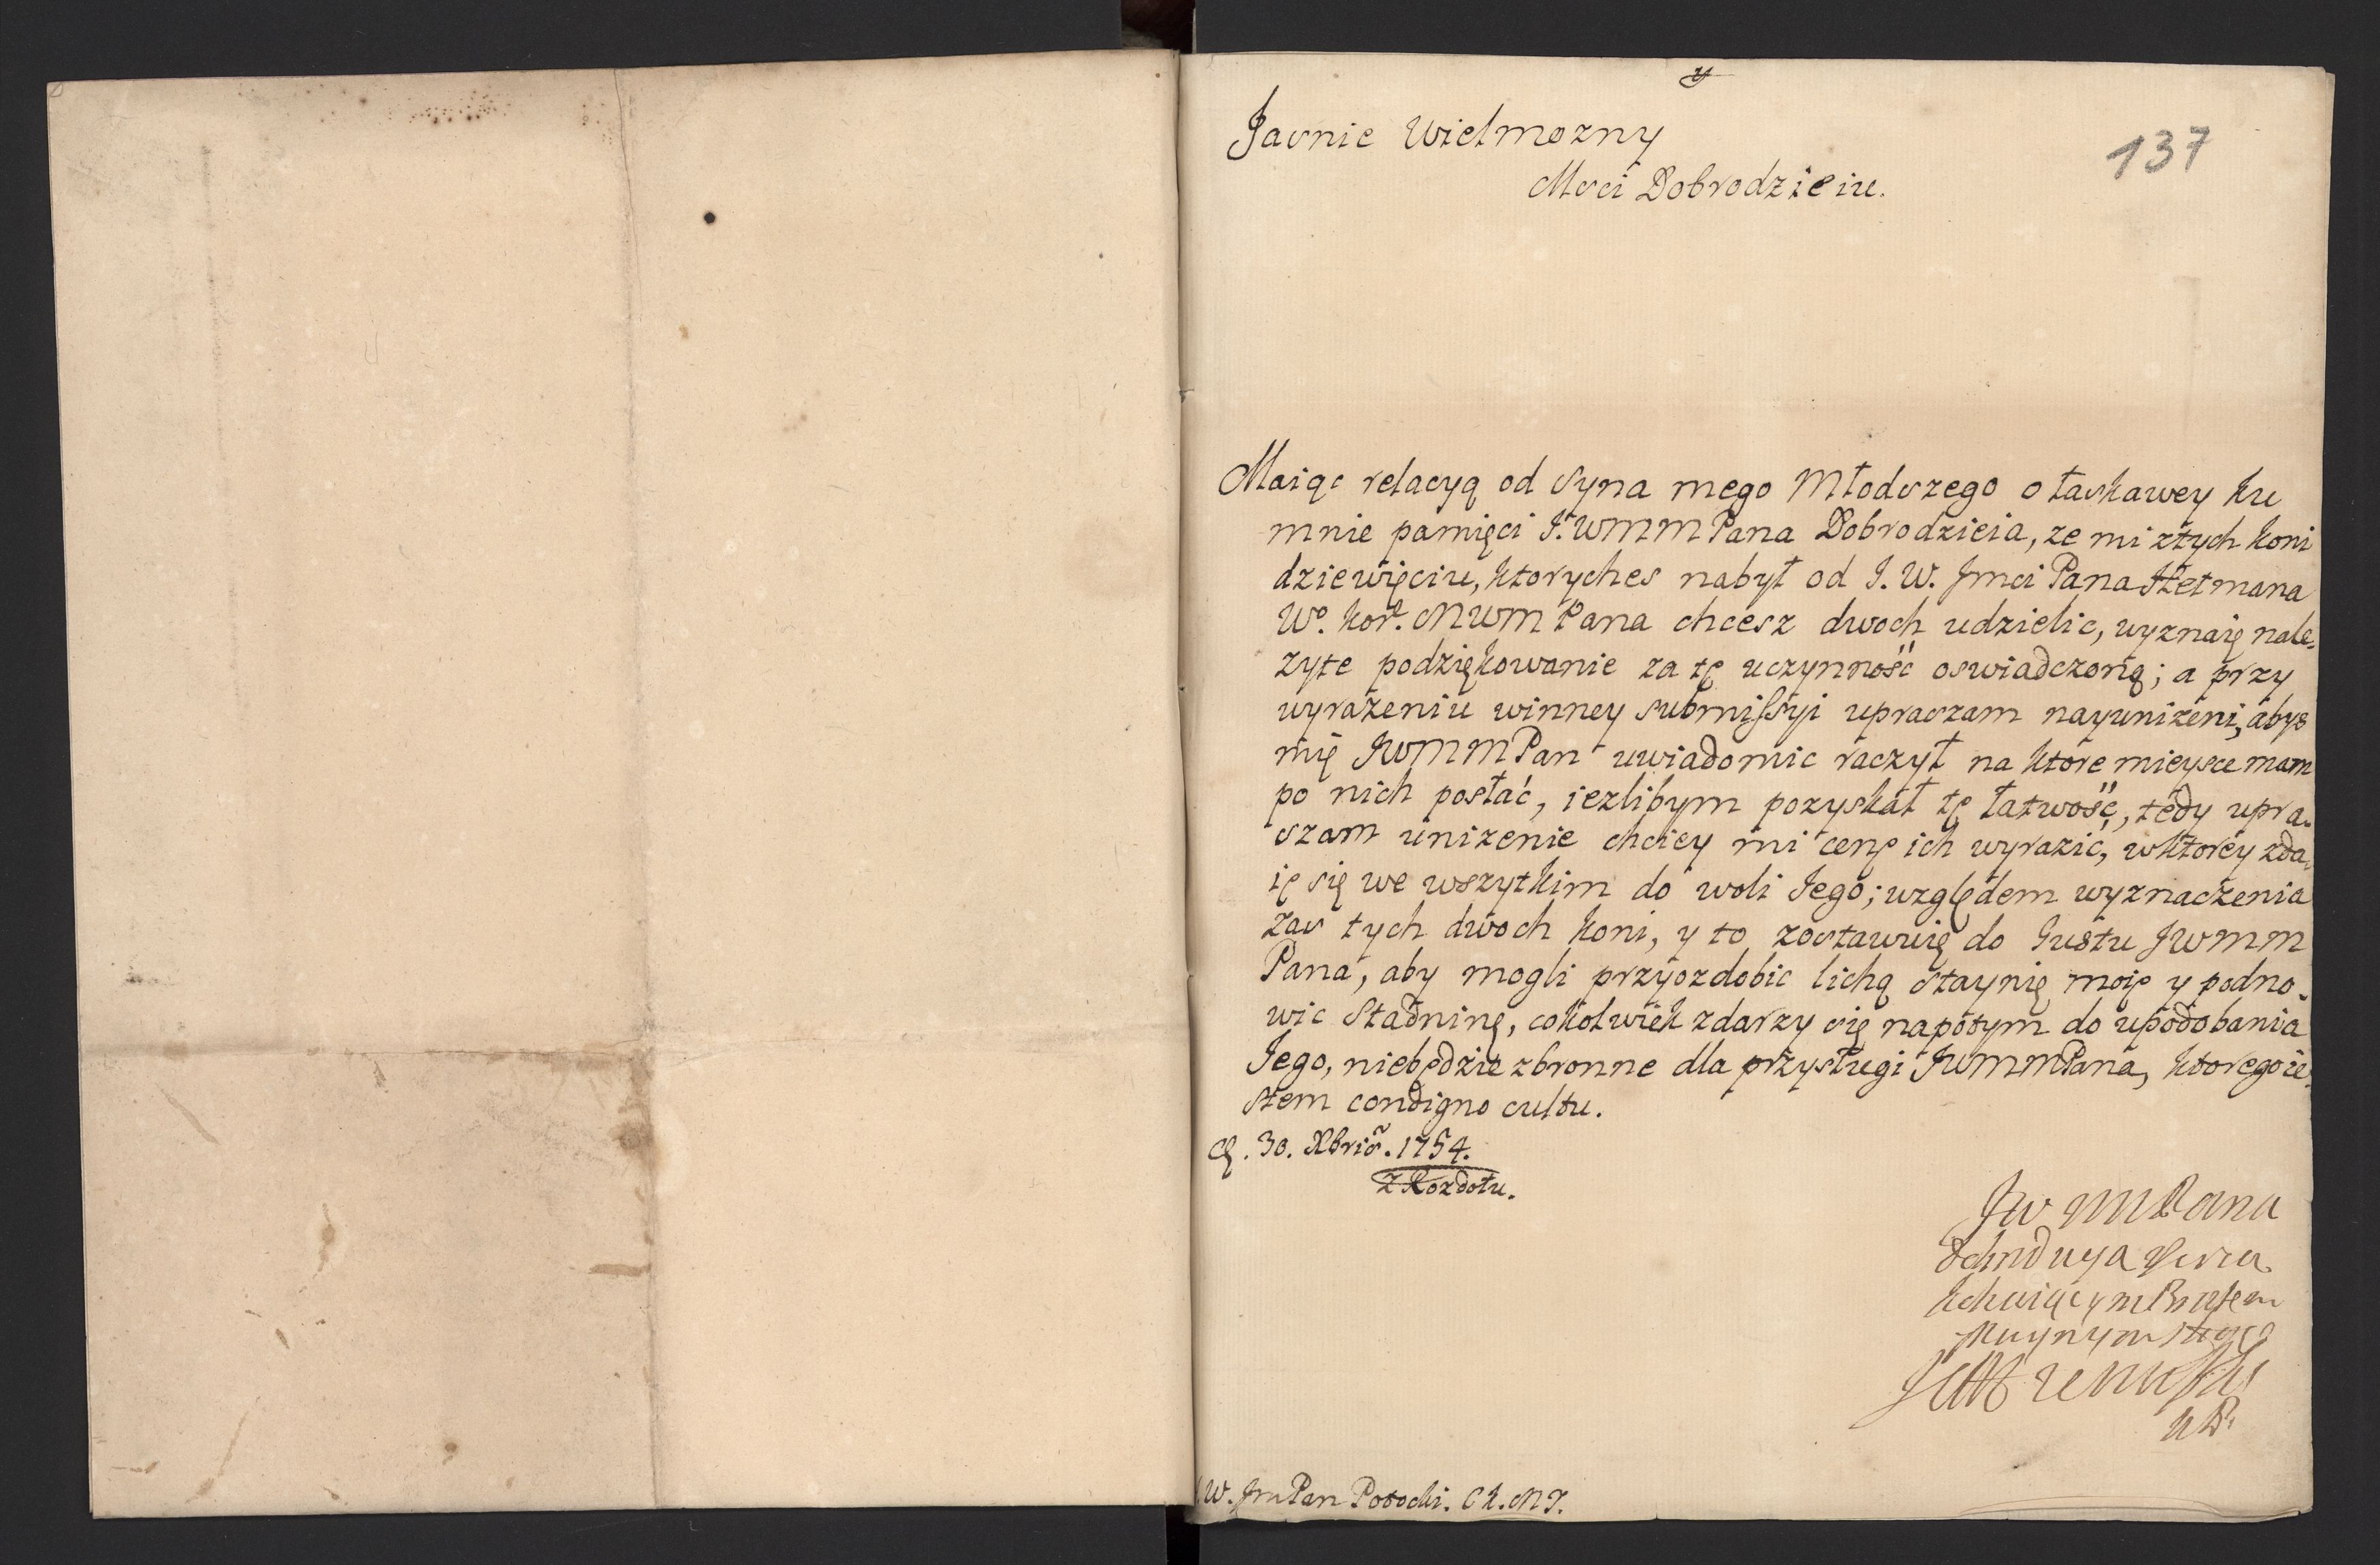 137
Jasnie Wielmozny
Mosci Dobrodzieiu.
Maiąc relacyą od syna mego Młodszego o łaskawey ku
mnie pamięci J.WMM Pana Dobrodzieia, ze mi ztych koni
dziewięciu, ktoryches nabył od J. W. Jmci Pana Hetmana
Wo. Kor. MWM Pana chcesz dwoch udzielic, wyznaię nale=
zyte podziękowanie za tę uczynność oswiadczoną; a przy
wyrażeniu winney submissyi upraszam nayunizeni, abys
mię JWMMPan uwiadomic raczył na ktore mieysce mam
po nich posłać, iezlibym pozyskał tę łatwość, tedy upra=
szam unizenie chciey mi cenę ich wyrazić, wktorey zda=
ię się we wszytkim do woli Jego; względem wyznaczenia
zas tych dwoch koni, y to zostawuię do Gustu JWMM
Pana, aby mogli przyozdobic lichą staynię moię y podno=
wic Stadninę, cokolwiek zdarzy się napotym do upodobania
Jego, niebędzie zbronne dla przysługi JWMMPana, ktorego ie=
stem condigno cultu.
30. Xbris. 1754.
z Rozdołu.
JW MMPana
Kchaiącym Bratem
sługą
W. Jm Pan Potocki.